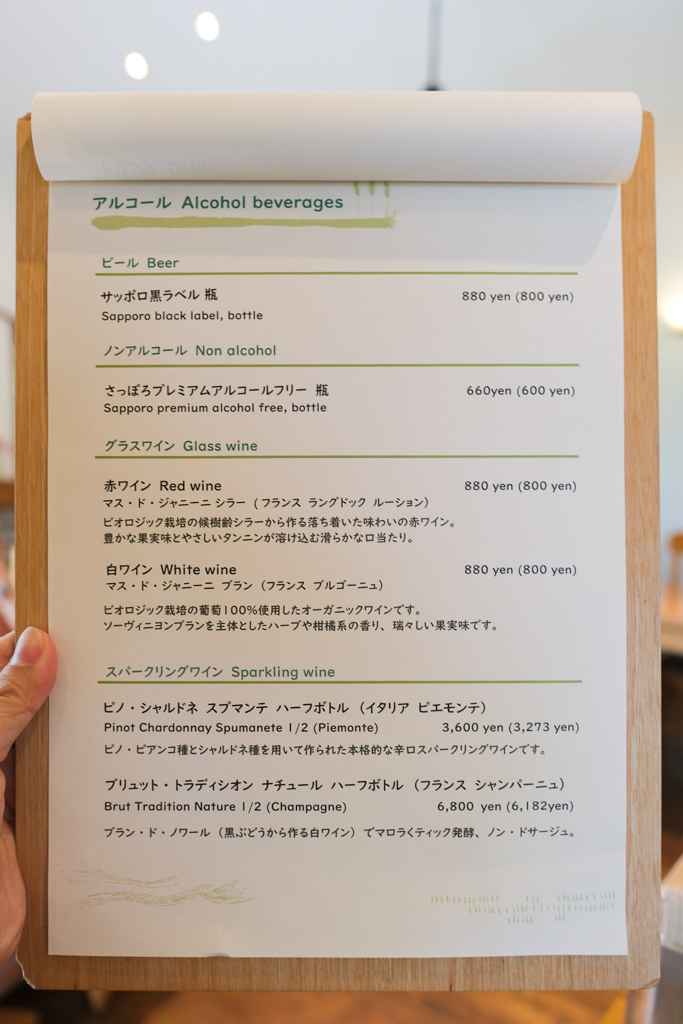 アルコール Alcohol beverages
ビール Beer
サッポロ黒ラベル 瓶 880 yen (800 yen)
Sapporo black label, bottle
ノンアルコール Non alcohol
さっぽろプレミアムアルコールフリー 瓶 660yen (600 yen)
Sapporo premium alcohol free, bottle
グラスワイン Glass wine
赤ワイン Red wine 880 yen (800 yen)
マス・ド・ジャニーニ シラー (フランス ラングドック ルーション)
ビオロジック栽培の候樹齢シラーから作る落ち着いた味わいの赤ワイン。
豊かな果実味とやさしいタンニンが溶け込む滑らかな口当たり。
白ワイン White wine 880 yen (800 yen)
マス・ド・ジャニーニ ブラン (フランス ブルゴーニュ)
ビオロジック栽培の葡萄100%使用したオーガニックワインです。
ソーヴィニヨンブランを主体としたハーブや柑橘系の香り、瑞々しい果実味です。
スパークリングワイン Sparkling wine
ピノ・シャルドネ スプマンテ ハーフボトル (イタリア ピエモンテ)
Pinot Chardonnay Spumanete 1/2 (Piemonte) 3,600 yen (3,273 yen)
ピノ・ビアンコ種とシャルドネ種を用いて作られた本格的な辛口スパークリングワインです。
ブリュット・トラディシオン ナチュール ハーフボトル (フランス シャンパーニュ)
Brut Tradition Nature 1/2 (Champagne) 6,800 yen (6,182yen)
ブラン・ド・ノワール (黒ぶどうから作る白ワイン) でマロラくティック発酵、ノン・ドサージュ。